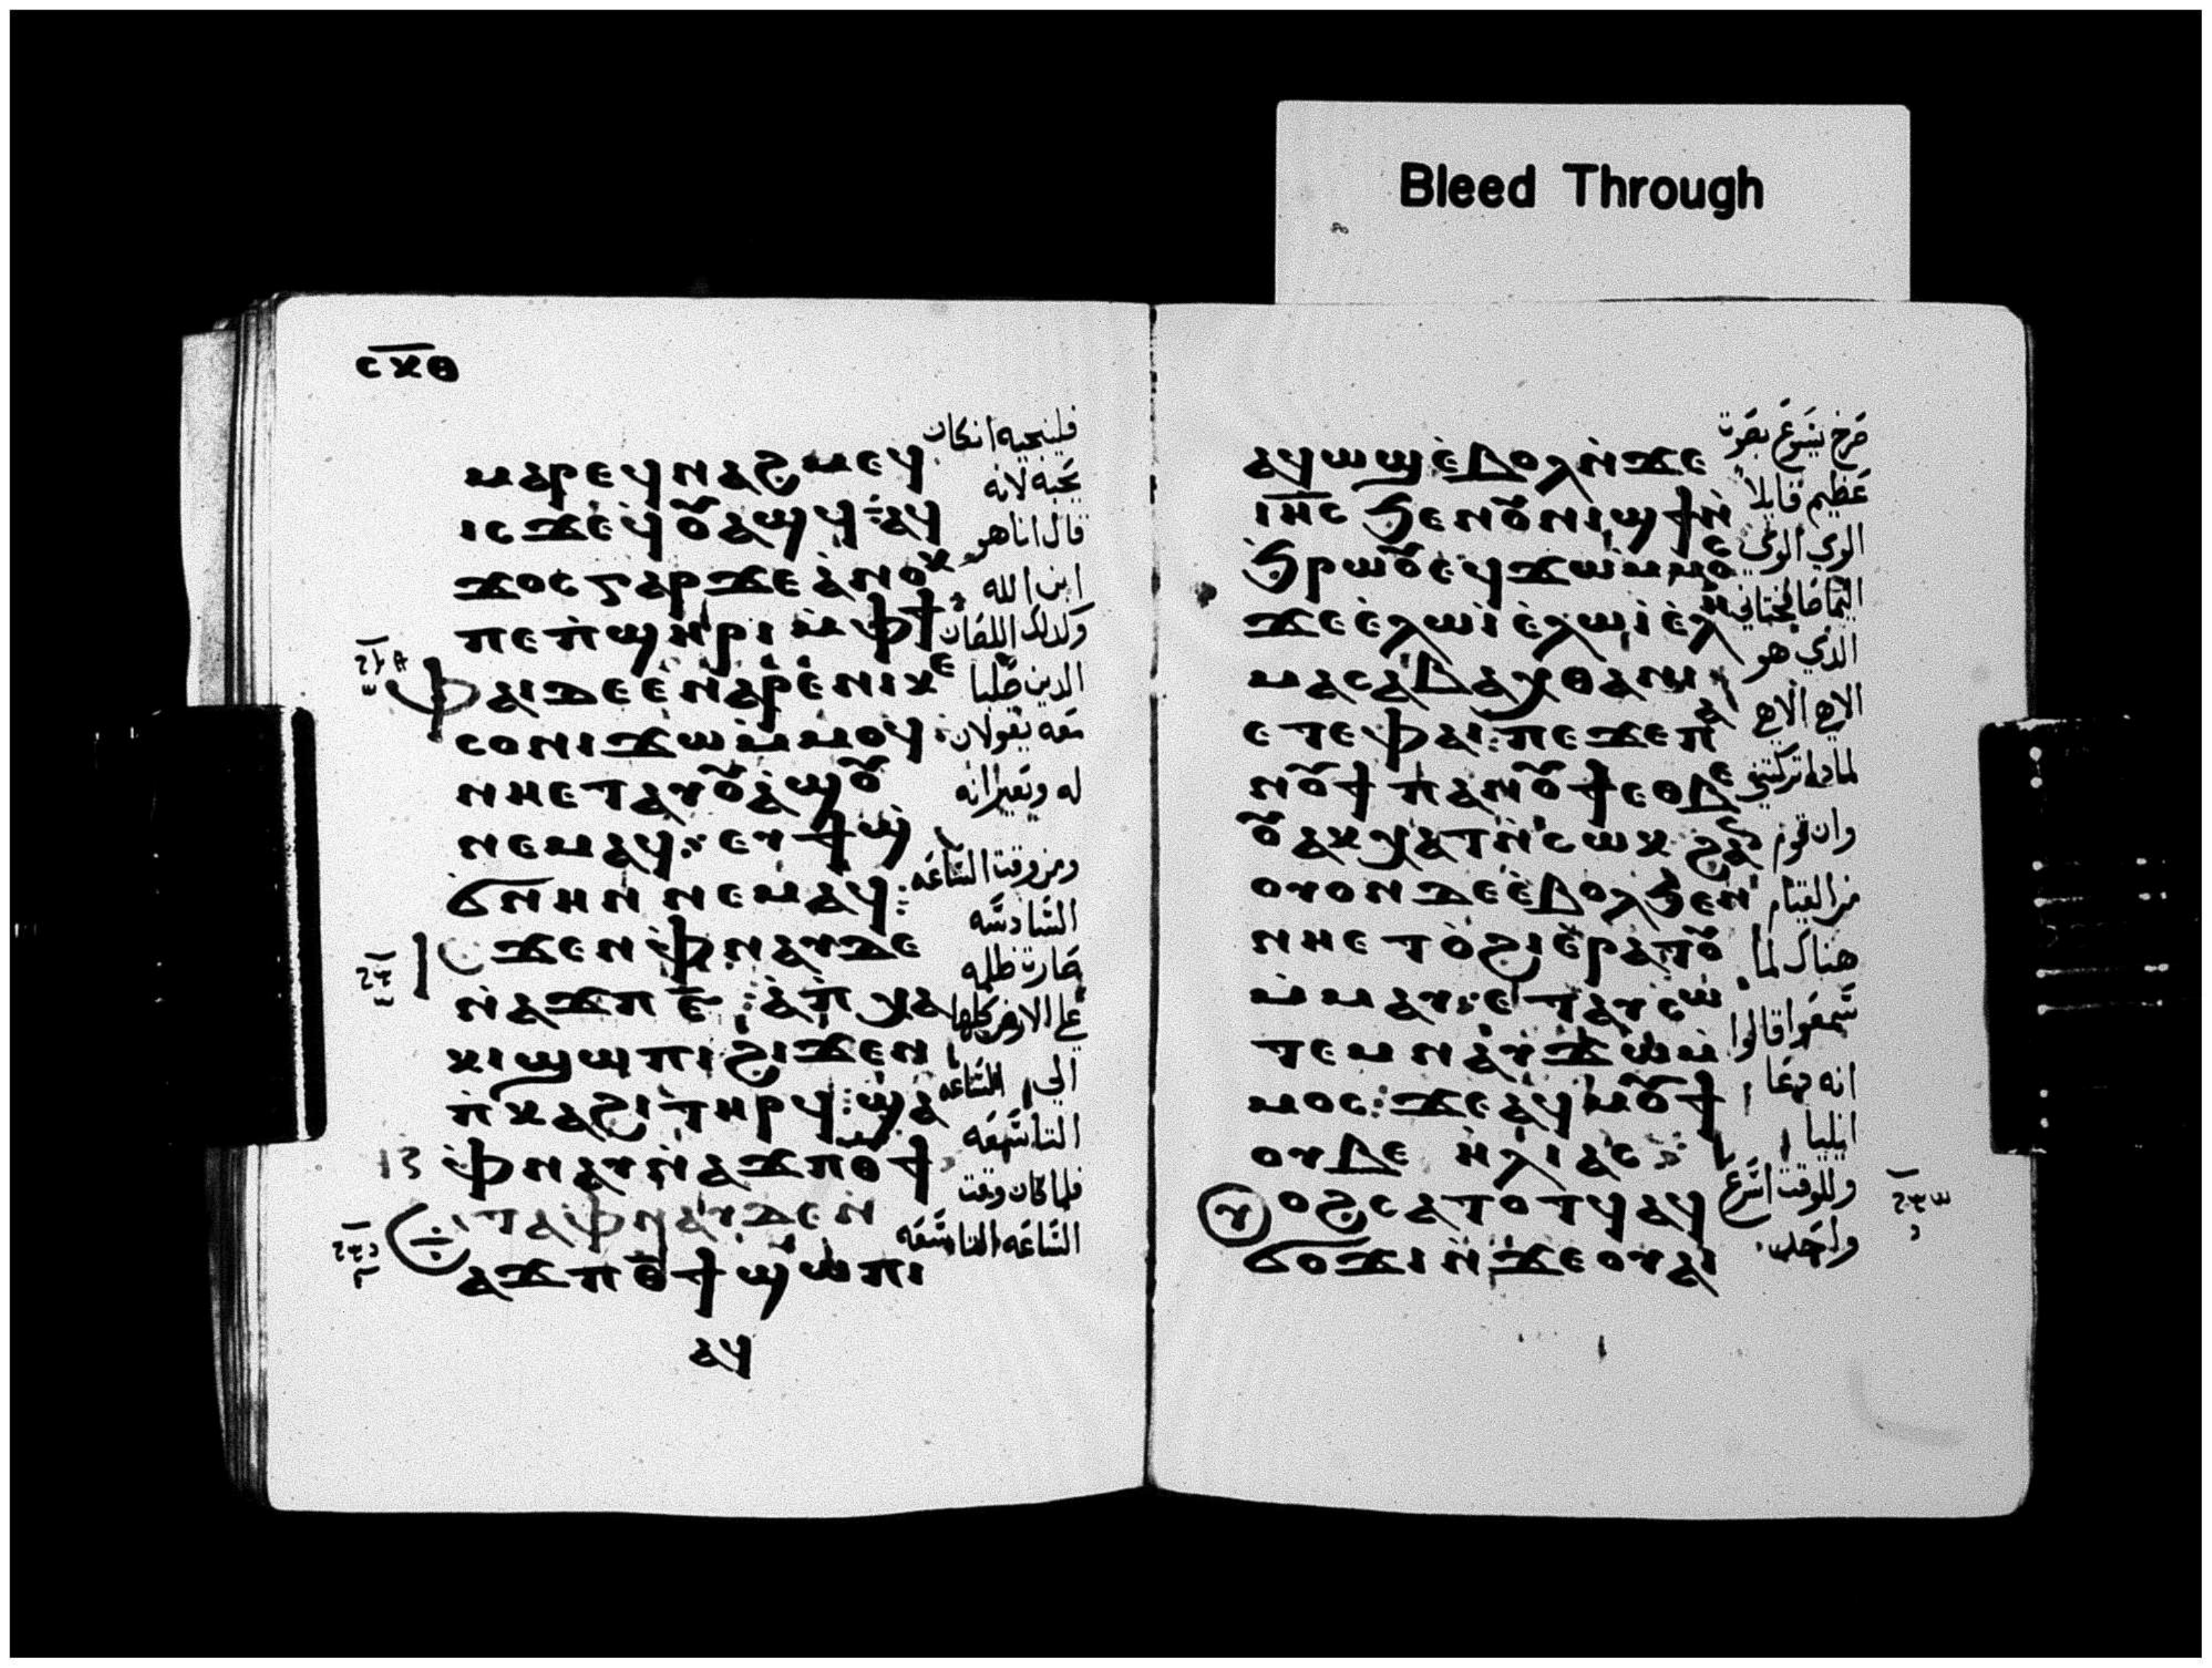 Bleed Through
ⲥⲝⲑ
ⲙⲁⲣⲉϥⲛⲁϩⲙⲉϥ
ⲓⲥϫⲉϥⲟⲩⲁϣϥ:ⲁϥ
ϫⲟⲥⲅⲁⲣϫⲉⲁⲛⲟⲕ
ⲡⲉⲡ̀ϣⲏⲣⲓⲙ̀ⲫϯ
ⲫⲁⲓⲇⲉⲉ̀ⲛⲁⲣⲉ̀ⲛⲓⲕⲉ
ⲥⲟⲛⲓϫⲱⲙ̀ⲙⲟϥ:
ⲛⲏⲉⲧⲁⲩⲟⲩⲁ̀ϣⲟⲩ
ⲛⲉⲙⲁϥ:ⲉⲩϯϣ
ϭⲛⲏⲛ ⲛⲉⲙⲁϥ:
ϫⲉⲛ ⲫⲛⲁⲩⲇⲉ
ⲛ̀ⲁϫⲡ ⲋ̄:ⲁ̀ⲡ̀ⲭⲁ
ⲕⲓϣⲱⲡⲓϩⲓϫⲉⲛ
ⲡ̀ⲕⲁϩⲓⲧⲏⲣϥ:ϣⲁ
ⲫⲛⲁⲩⲛ̀ⲁϫⲡⲑϯ
ⲧⲁⲫⲛⲁⲩⲇⲉⲛ̀
ⲁϫⲡⲑϯϣⲱⲡⲓ
ⲁϥ
فلينجيه انكان
يحبه لانه
قال انا هو
ابن الله
وكدلك اللصان
الدين صلبا
معه يقولان
له ويعيرانه
ومن وقت الساعه
السادسه
صارت ظلمه
على الارض كلها
الى الساعه
التاسعه
فلما كان وقت
الساعه التاسعه
ⲁϥⲱϣⲉ̀ⲃⲟⲗⲛ̀ϫⲉ
ⲓⲏⲥ ϧⲉⲛⲟⲩⲛⲓϣϯⲛ̀
ϧⲣⲱⲟⲩⲉϥϫⲱⲙ̀ⲙⲟⲥ
ϫⲉⲉ̀ⲗⲱⲓⲉ̀ⲗⲱⲓⲉ̀ⲗⲏ
ⲙⲁⲥⲁⲃⲁⲭⲑⲁⲛⲓ
ⲉⲧⲉⲫⲁⲓ:ⲡⲉϫⲉⲡⲁ
ⲛⲟⲩϯ ⲡⲁⲛⲟⲩϯⲉⲑⲃⲉ
ⲟⲩⲁⲕⲭⲁⲧⲛ̀ⲥⲱⲕ ϩⲁⲛ
ⲟⲩⲟⲛⲇⲉⲉ̀ⲃⲟⲗϧⲉⲛ
ⲛⲏⲉⲧⲟ̀ϩⲓⲉ̀ⲣⲁⲧⲟⲩ
ⲙ̀ⲙⲁⲩ:ⲉⲧⲁⲩⲥⲱ
ⲧⲉⲙ ⲛⲁⲩϫⲱⲙ̀
ⲙⲟⲥ:ϫⲉⲁϥⲙⲟⲩϯ
ⲟⲩⲃⲉ ⲏⲗⲓⲁⲥ:
ⲟϩⲥⲁⲧⲟⲧϥⲁϥ
ϭⲟϫⲓⲛ̀ϫⲉⲟⲩⲁⲓ
صرخ يسوع بصوت
عظيم قايلا
الوى الوى
الذي هو
الاهى الاهى
لمادا تركتني
وان قوم
من القيام
هناك لما
سمعوا قالوا
انه دعا
ايليا
وللوقت اسرع
واحد